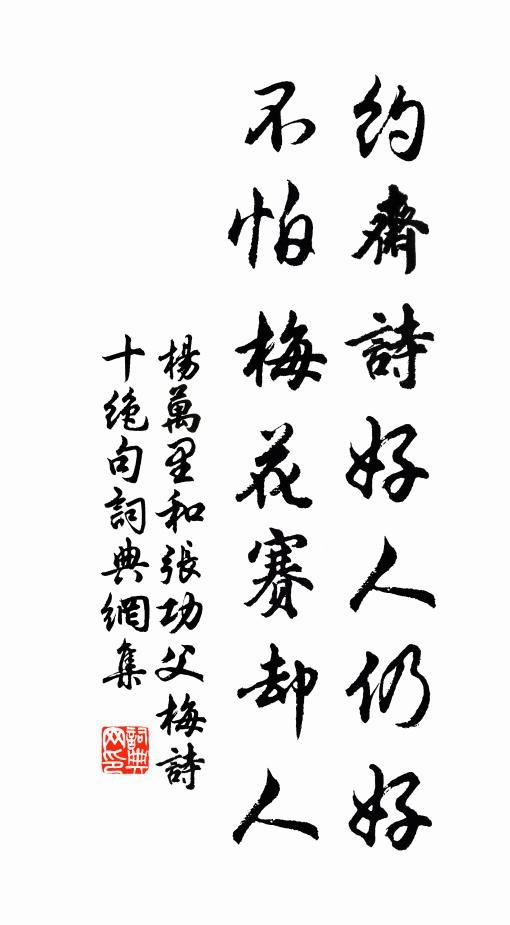 約齋詩好人仍好
不怕梅花賽却人
楊萬里和張功父梅詩
十絶句詞典網集
詞典網印